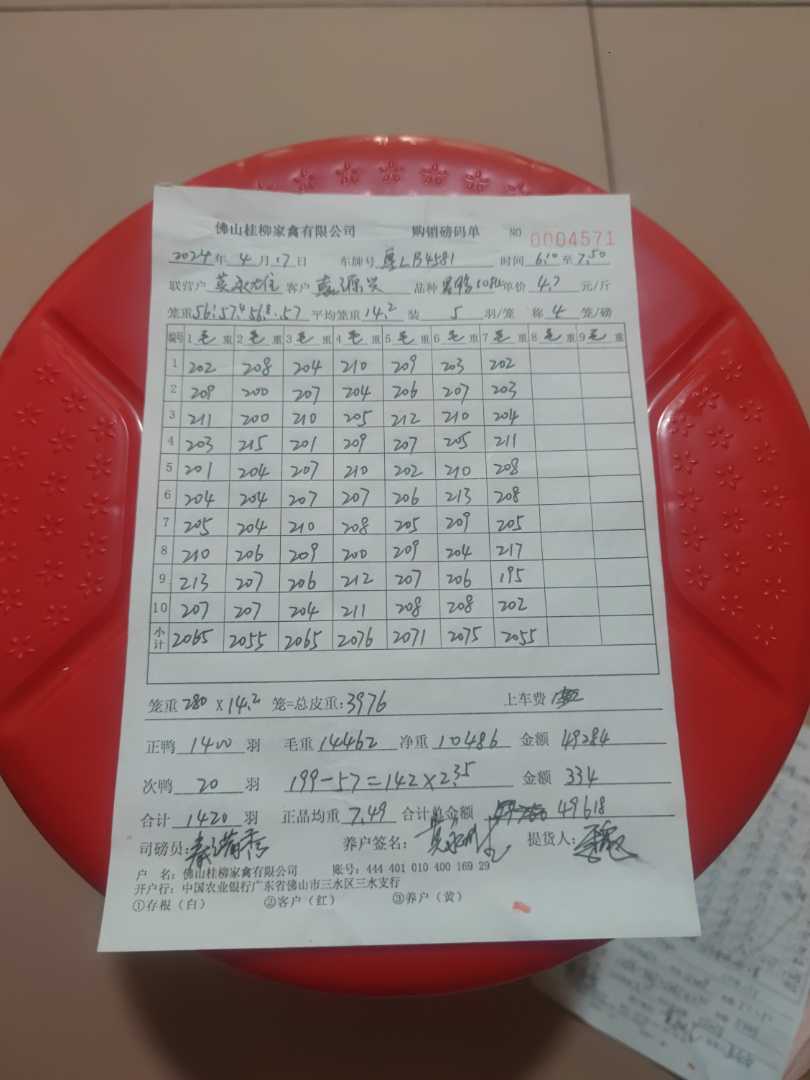 佛山桂柳家禽有限公司 购销磅码单 NO 0004571
2024年 4月17日 车牌号 粤LB4581 时间 6:10至7:50
联营户 客户 嘉源兴 品种 单价 4.7 元/斤
笼重 56.57.4 56.8.57 平均笼重 14.2 装 5 羽/笼 称 4 笼/磅
编号 1毛重 2毛重 3毛重 4毛重 5毛重 6毛重 7毛重 8毛重 9毛重
1 202 208 204 210 209 203 202
2 209 200 207 204 206 207 203
3 211 200 210 205 212 210 204
4 203 215 201 209 207 205 211
5 201 204 207 210 202 210 208
6 204 204 207 207 206 213 208
7 205 204 210 208 205 209 205
8 210 206 209 200 209 204 217
9 213 207 206 212 207 206 195
10 207 207 204 211 208 208 202
小计 2065 2055 2065 2076 2071 2075 2055
笼重 280 X 14.2 笼=总皮重:3976 上车费
正鸭 1400 羽 毛重 14462 净重 10486 金额 49284
次鸭 20 羽 199-57=142×2.35 金额 334
合计 1420 羽 正品均重 7.49 合计总金额 49618
司磅员: 养户签名: 提货人:
户 名:佛山桂柳家禽有限公司 账号:444 401 010 400 169 29
开户行:中国农业银行广东省佛山市三水区三水支行
①存根(白) ②客户(红) ③养户(黄)